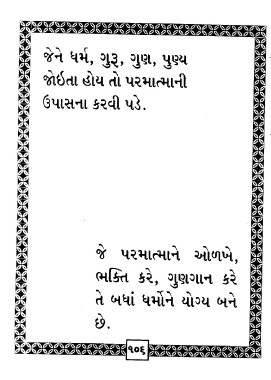 જેને ધર્મ, ગુરૂ, ગુણ, પુણ્ય
જોઇતા હોય તો પરમાત્માની
ઉપાસના કરવી પડે.
જે પરમાત્માને ઓળખે,
ભક્તિ કરે, ગુણગાન કરે
તે બધાં ધર્મોને યોગ્ય બને
છે.
૧૦૬